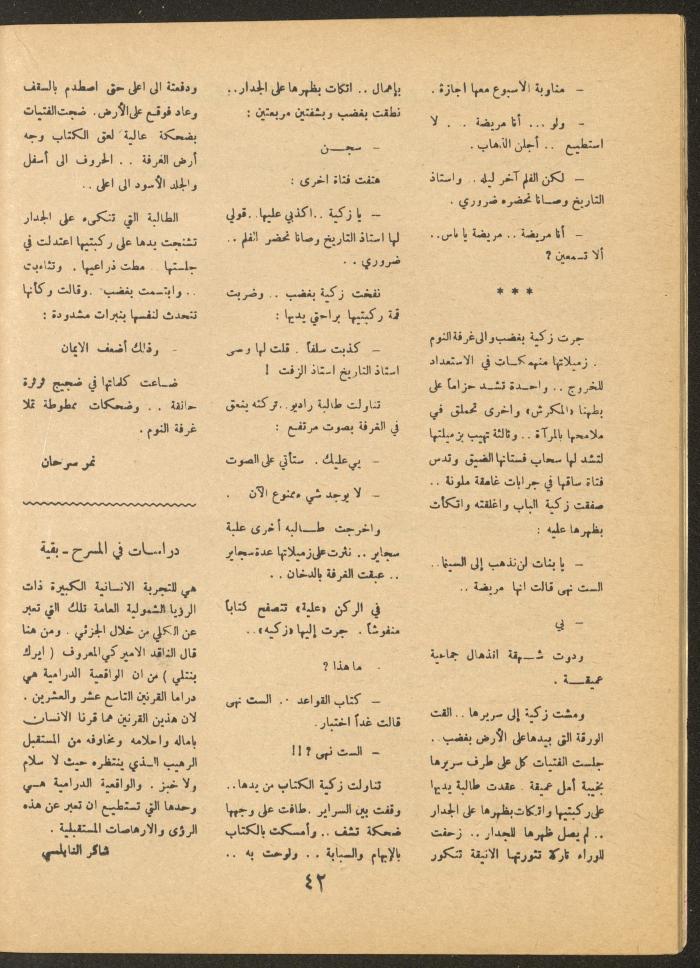 — مناوبة الأسبوع معها اجازة .
— ولو ... أنا مريضة . . . لا
استطيع .. أجلن الذهاب .
— لكن الفلم آخر ليله . واستاذ
التاريخ وصانا نحضره ضروري .
— أنا مريضة .. مريضة يا ناس ..
ألا تسمعين ؟
* * *
جرت زكية بغضب والى غرفة النوم
. زميلاتها منهمكات في الاستعداد
للخروج .. واحدة تشد حزاماً على
بطنها «المكرش» واخرى تحملق في
ملامحها بالمرآة .. وثالثة تهيب بزميلتها
لتشد لها سحاب فستانها الضيق وتدس
فتاة ساقها في جرابات غامقة ملونة ..
صفقت زكية الباب واغلقته واتكأت
بظهرها عليه :
— يا بنات لن نذهب إلى السينما ..
الست نهى قالت انها مريضة ..
— بي
ودوت شهقة انذهال جماعية
عميقة .
ومشت زكية إلى سريرها .. القت
الورقة التى بيدها على الأرض بغضب ..
جلست الفتيات كل على طرف سريرها
بخيبة أمل عميقة . عقدت طالبة يديها
على ركبتيها واتكات بظهرها على الجدار
.. لم يصل ظهرها للجدار .. زحفت
للوراء تاركة تنورتها الانيقة تتكور
بإهمال .. اتكات بظهرها على الجدار ..
نطقت بغضب وبشفتين مربعتين :
— سجن
هتفت فتاة اخرى :
— يا زكية .. اكذبي عليها .. قولي
لها استاذ التاريخ وصانا نحضر الفلم ..
ضروري ..
نفخت زكية بغضب .. وضربت
قمة ركبتيها براحتي يديها :
— كذبت سلفاً . قلت لها وصى
استاذ التاريخ استاذ الزفت !
تناولت طالبة راديو .. تركته ينعق
في الغرفة بصوت مرتفع :
— بي عليك . ستأتي على الصوت
— لا يوجد شيء ممنوع الآن .
واخرجت طالبه أخرى علبة
سجاير .. نثرت على زميلاتها عدة سجاير
.. عبقت الغرفة بالدخان ..
في الركن «علية» تتصفح كتاباً
منفوشاً . جرت إليها «زكيه» ..
. ما هذا ؟
— كتاب القواعد .. الست نهى
قالت غداً اختبار .
— الست نهى ؟ !!
تناولت زكية الكتاب من يدها ..
وقفت بين السراير . طافت على وجهها
ضحكة تشف .. وأمسكت بالكتاب
بالإبهام والسبابة .. ولوحت به ..
ودفعتة الى اعلى حتى اصطدم بالسقف
وعاد فوقع على الأرض . ضجت الفتيات
بضحكة عالية لعق الكتاب وجه
أرض الغرفة .. الحروف الى أسفل
والجلد الأسود الى اعلى ..
الطالبة التي تتكىء على الجدار
تشنجت يدها على ركبتيها اعتدلت في
جلستها .. مطت ذراعيها . وتثاءبت
.. وابتسمت بغضب . وقالت وكأنها
تتحدث لنفسها بنبرات مشدودة :
- وذلك أضعف الايمان
ضاعت كلماتها في ضجيج ثرثرة
خانقة .. وضحكات ممطوطة تملا
غرفة النوم .
نمر سرحان
دراسات في المسرح - بقية
هي للتجربة الانسانية الكبيرة ذات
الرؤيا الشمولية العامة تلك التي تعبر
عن الكلي من خلال الجزئي . ومن هنا
قال الناقد الاميركي المعروف ( ايرك
بنتلي ) من ان الواقعية الدرامية هي
دراما القرنين التاسع عشر والعشرين .
لان هذين القرنين هما قرنا الانسان
باماله واحلامه ومخاوفه من المستقبل
الرهيب الذي ينتظره حيث لا سلام
ولا خبز . والواقعية الدرامية هي
وحدها التي تستطيع ان تعبر عن هذه
الرؤى والارهاصات المستقبلية .
شاكر النابلسي
٤٢